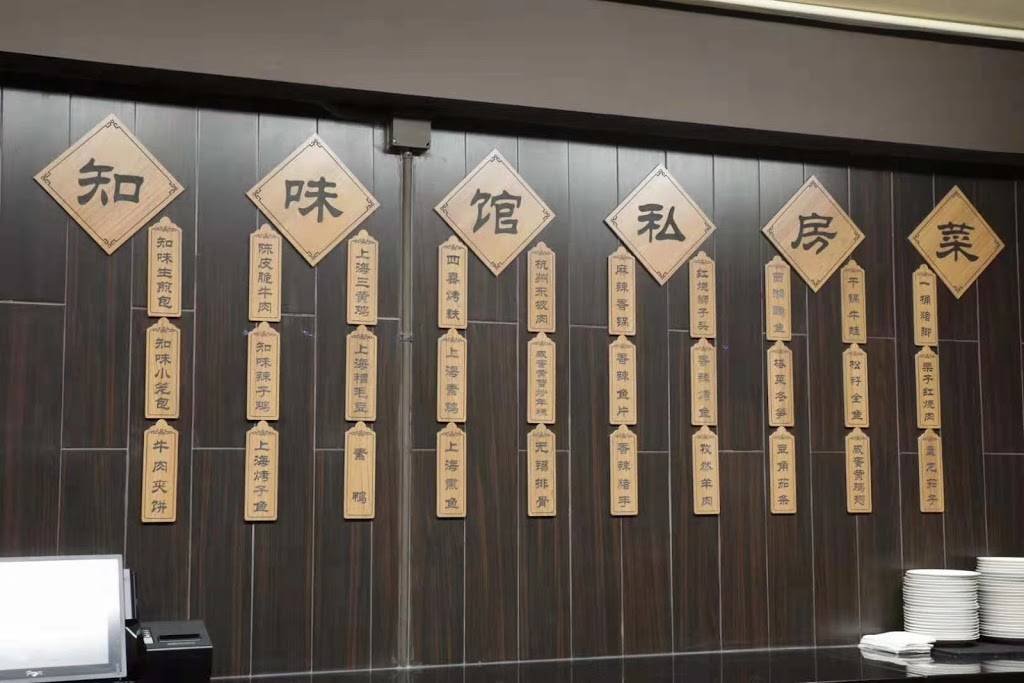 知味馆私房菜
知味生煎包
知味小笼包
牛肉夹饼
陈皮脆牛肉
知味辣子鸡
上海烤子鱼
上海三黄鸡
上海糟毛豆
素鸭
四喜烤麸
上海素鸡
上海熏鱼
杭州东坡肉
咸蛋黄炒年糕
无锡排骨
麻辣香锅
香辣鱼片
香辣猪手
红烧狮子头
香辣烤鱼
孜然羊肉
榨菜冬笋
豆角茄条
干锅牛蛙
松籽全鱼
咸蛋黄鸡翅
一桶猪脚
栗子红烧肉
盘龙茄子